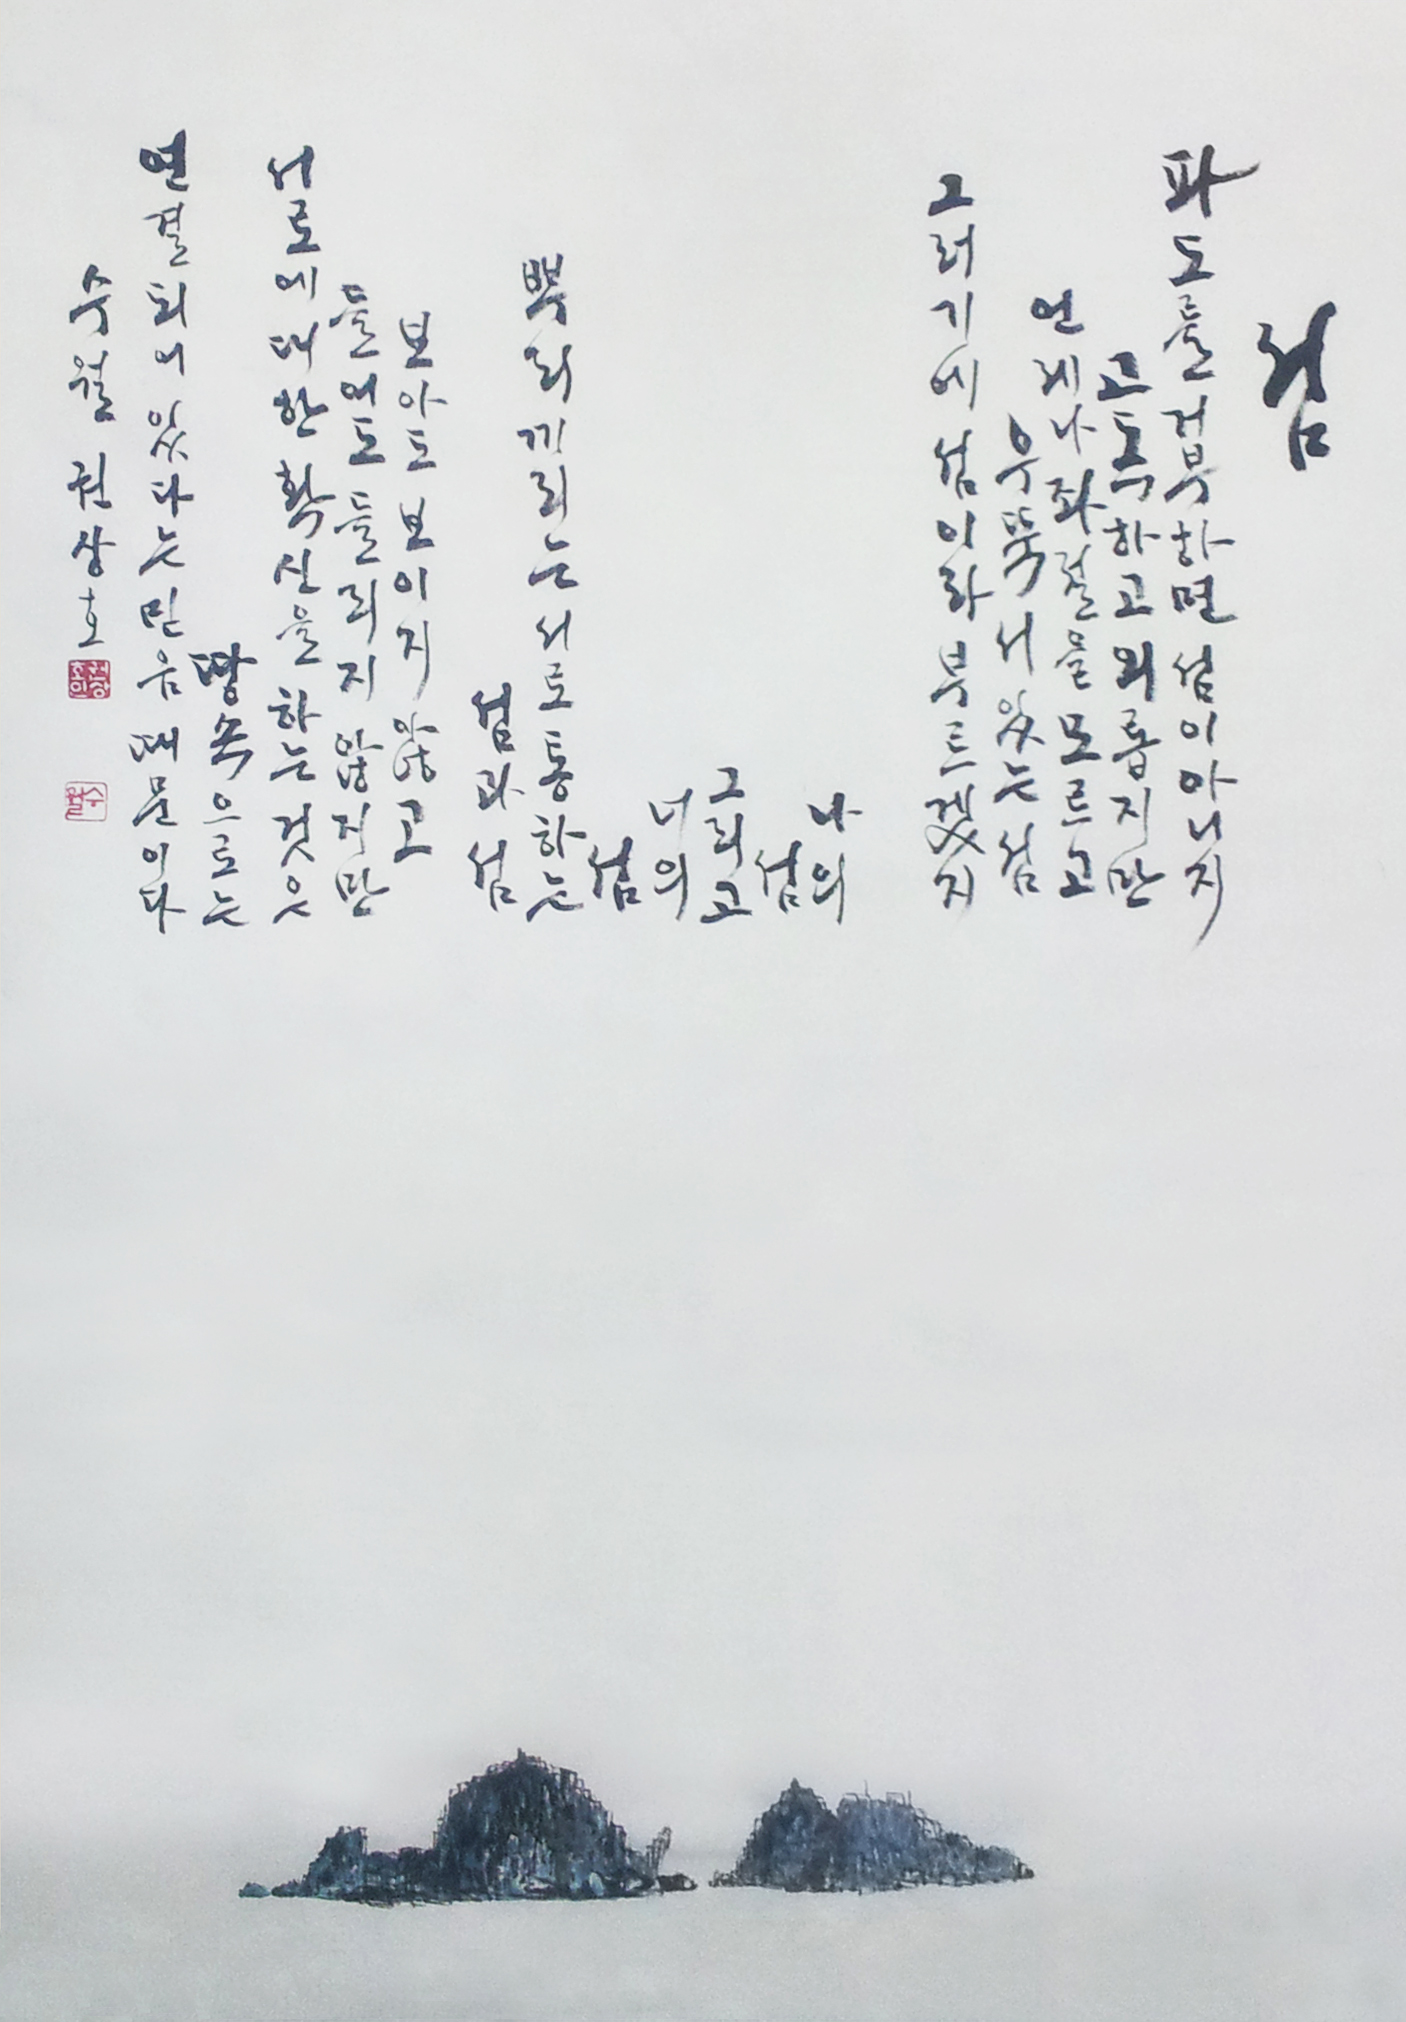 섬
파도를 거부하면 섬이 아니지
고독하고 외롭지만
언제나 좌절을 모르고
우뚝 서 있는 섬
그러기에 섬이라 부르겠지
나의
섬
그리고
너의
섬
뿌리끼리는 서로 통하는
섬과 섬
보아도 보이지 않고
들어도 들리지 않지만
서로에 대한 확신을 하는 것은
땅 속으로는
연결되어 있다는 믿음 때문이다
수월 권상호
권상호인
수월